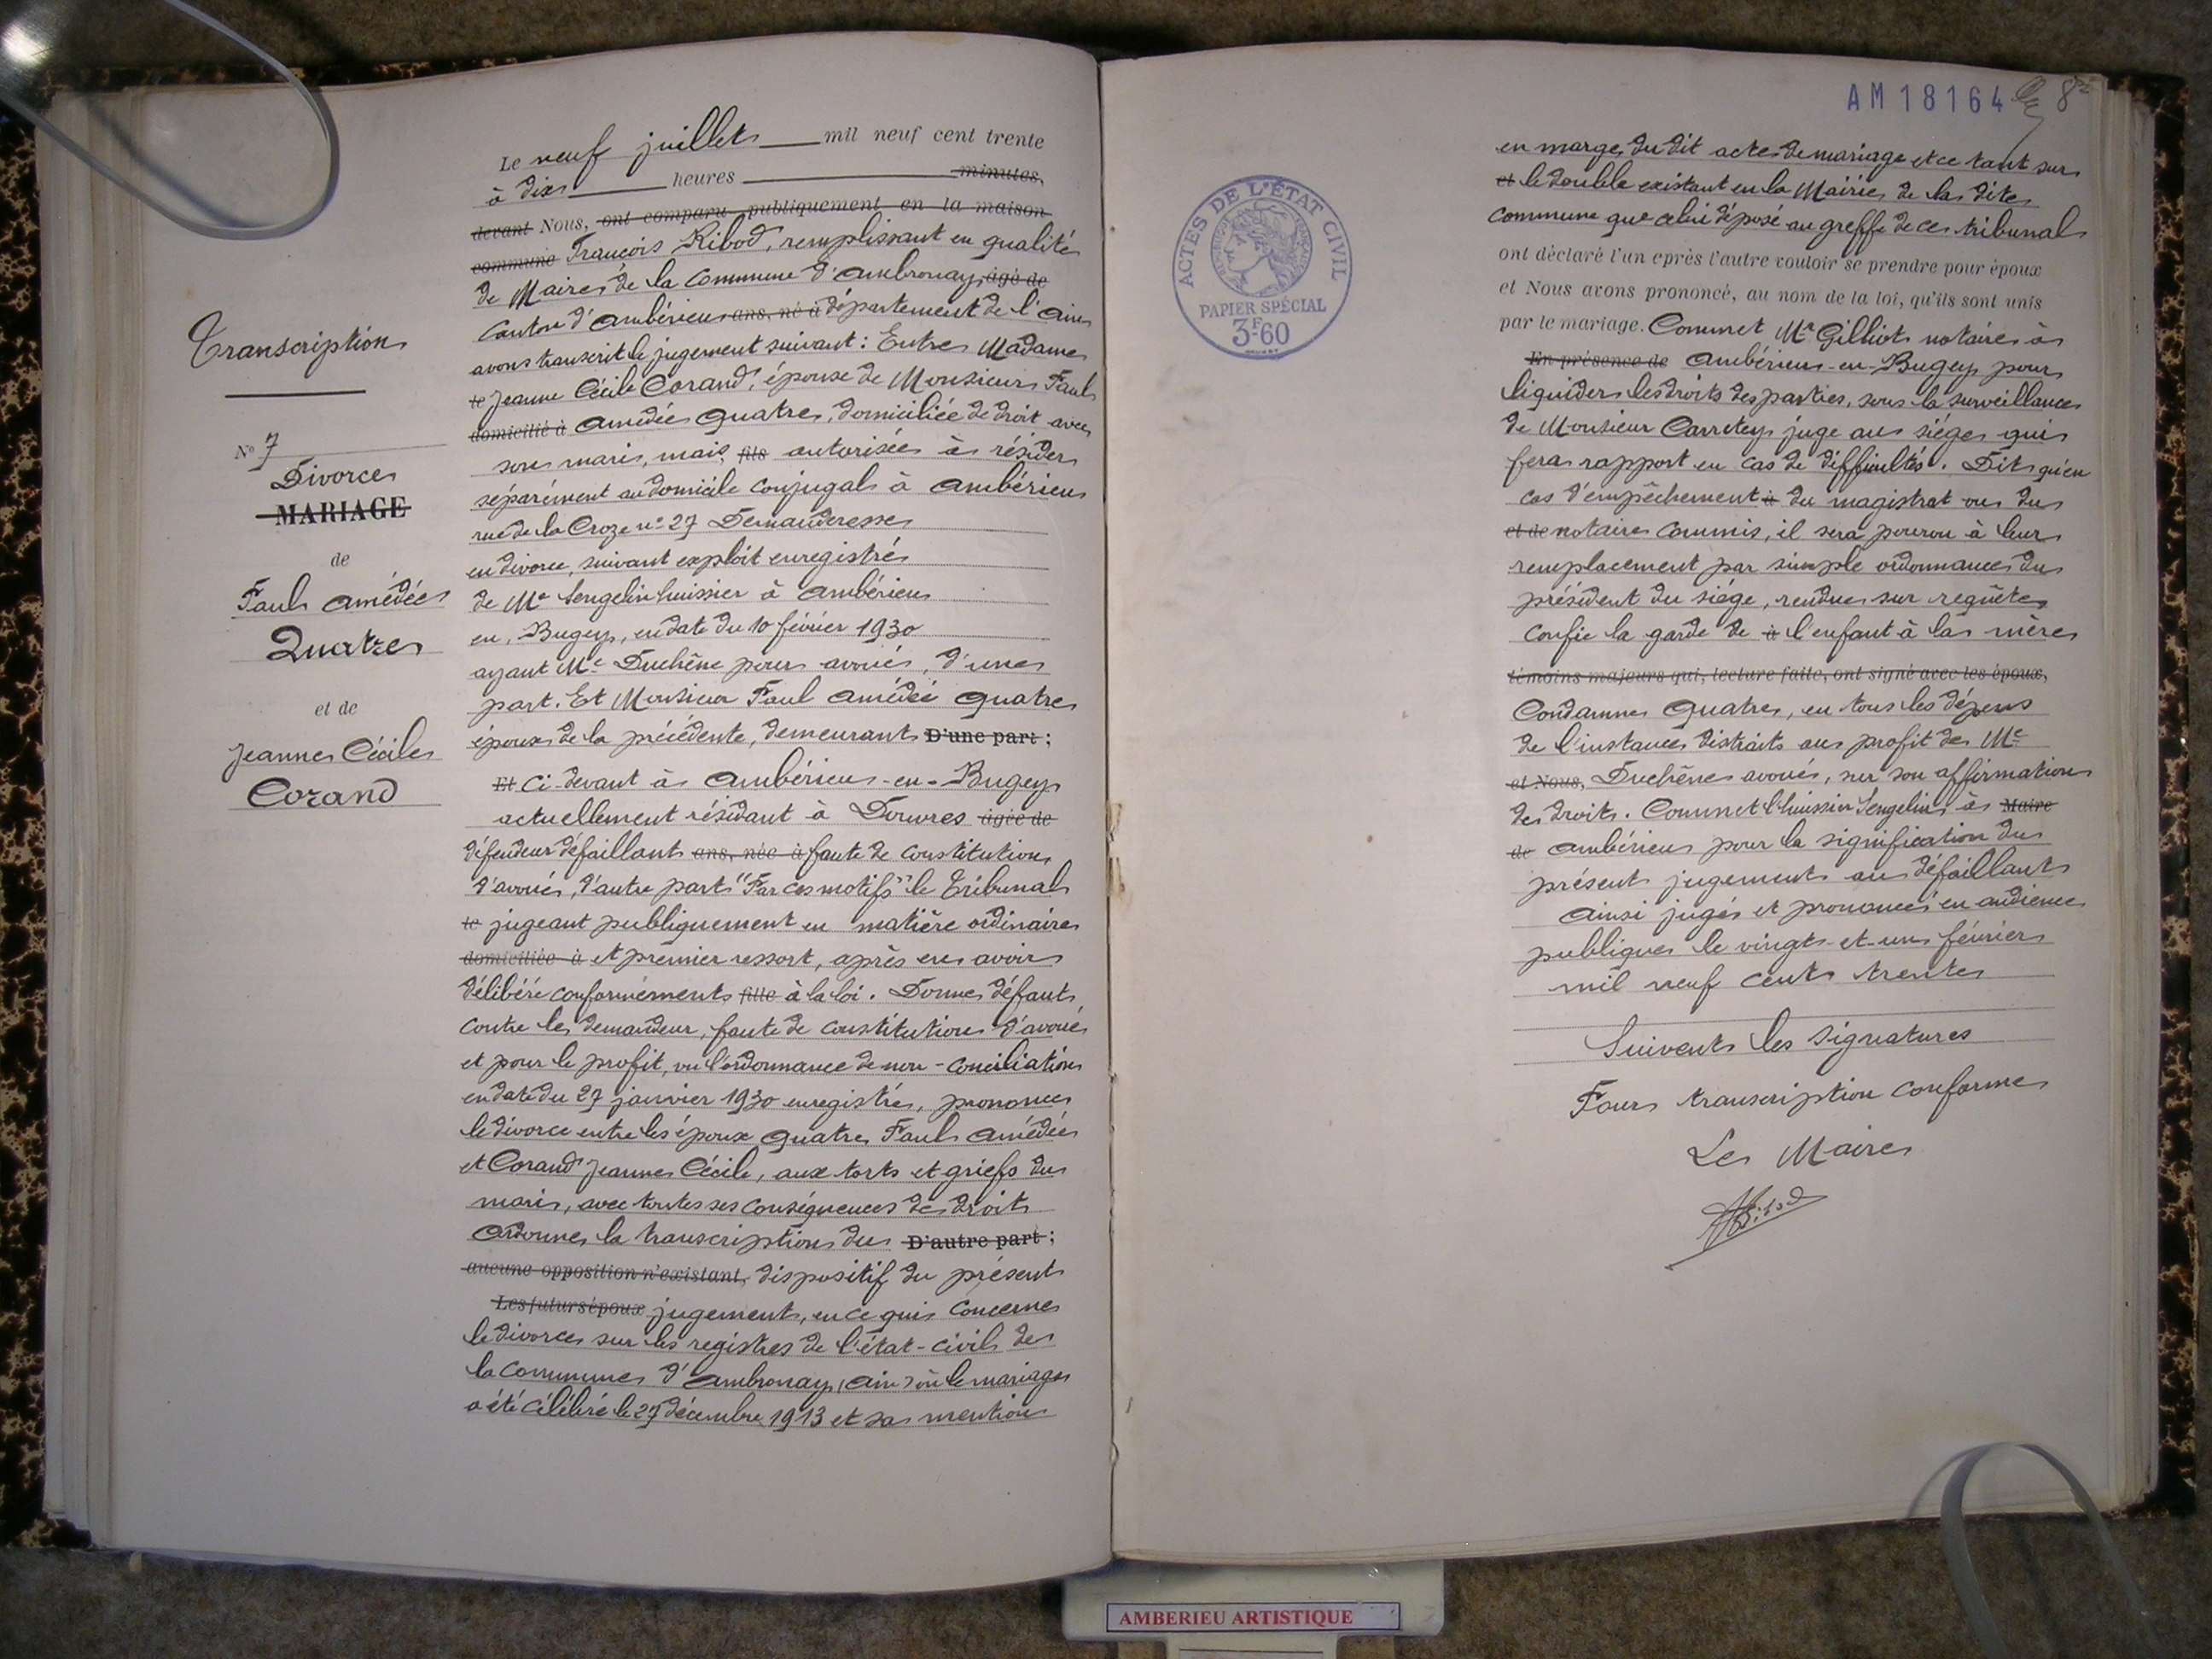 Transcription
N° 7
Divorce
MARIAGE
de
Paul Amédée
Quatre
et de
Jeanne Cécile
Corand
Le neuf juillet mil neuf cent trente
à dix heures minutes,
devant Nous, ont comparu publiquement en la maison
commune François Ribod, remplissant en qualité
de Maire de la Commune d'Ambronay, âgé de
canton d'Ambérieu ans, né à département de l'Ain
avons transcrit le jugement suivant : Entre Madame
le Jeanne Cécile Corand, épouse de Monsieur Paul
domicilié à Amédée Quatre, domiciliée de droit avec
son mari, mais fils autorisée à résider
séparément au domicile conjugal à Ambérieu
rue de la Croze n° 27 Demanderesse
en divorce, suivant exploit enregistré
de Me Sengelin huissier à Ambérieu
en Bugey, en date du 10 février 1930
ayant Me Duchêne pour avoué, d'une
part. Et Monsieur Paul Amédée Quatre
époux de la précédente, demeurant D'une part ;
Et ci-devant à Ambérieu-en-Bugey
actuellement résidant à Douvres âgée de
défendeur défaillant ans, née à faute de constitution
d'avoué, d'autre part "Par ces motifs" le Tribunal
le jugeant publiquement en matière ordinaire
domiciliée à et premier ressort, après en avoir
délibéré conformément fille à la loi. Donne défaut
contre le demandeur, faute de constitution d'avoué
et pour le profit, vu l'ordonnance de non-conciliation
en date du 27 janvier 1930 enregistrée, prononce
le divorce entre les époux Quatre Paul Amédée
et Corand Jeanne Cécile, aux torts et griefs du
mari, avec toutes ses conséquences de droit
Ordonne la transcription du D'autre part ;
aucune opposition n'existant, dispositif du présent
Les futurs époux jugement, en ce qui concerne
le divorce sur les registres de l'état-civil de
la commune d'Ambronay (Ain) où le mariage
a été célébré le 27 décembre 1913 et sa mention
AM 18164 8
ACTES DE L'ÉTAT CIVIL
PAPIER SPÉCIAL
3F60
en marge du dit acte de mariage et ce tant sur
et le double existant en la Mairie de la dite
commune que celui déposé au greffe de ce tribunal
ont déclaré l'un après l'autre vouloir se prendre pour époux
et Nous avons prononcé, au nom de la loi, qu'ils sont unis
par le mariage. Commet Me Gilliot notaire à
En présence de Ambérieu-en-Bugey pour
liquider les droits des parties, sous la surveillance
de Monsieur Carretey juge au siège qui
fera rapport en cas de difficultés. Dit qu'en
cas d'empêchement à du magistrat ou du
et de notaire commis, il sera pourvu à leur
remplacement par simple ordonnance du
président du siège, rendue sur requête
Confie la garde de à l'enfant à la mère
témoins majeurs qui, lecture faite, ont signé avec les époux,
Condamne Quatre, en tous les dépens
de l'instance distraits au profit de Me
et Nous, Duchêne avoué, sur son affirmation
de droit. Commet l'huissier Sengelin à Maire
de Ambérieu pour la signification du
présent jugement au défaillant
Ainsi jugé et prononcé en audience
publique le vingt-et-un février
mil neuf cent trente
Suivent les signatures
Pour transcription conforme
Le Maire
Ribod
AMBERIEU ARTISTIQUE